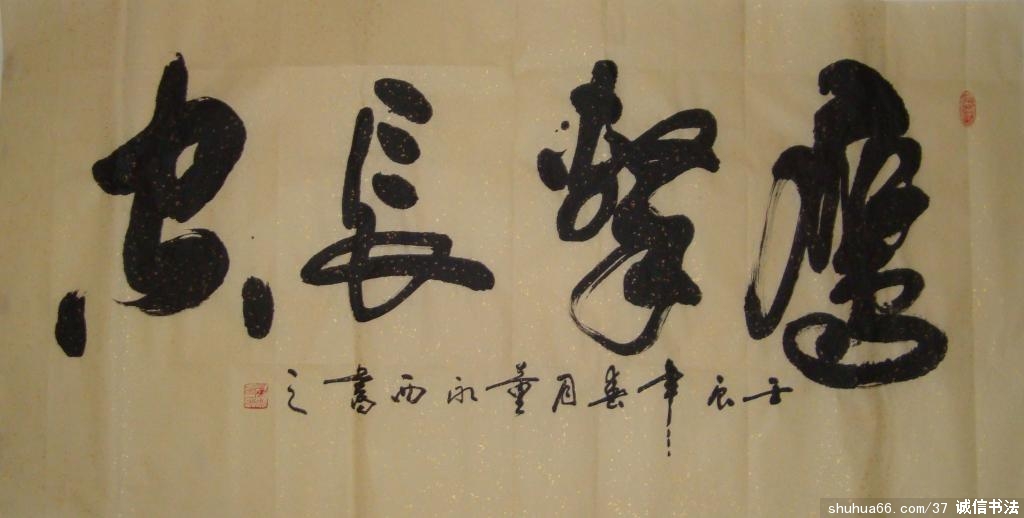 鹰击长空
壬辰年春月董永西书之
shuhua66.com/37 诚信书法